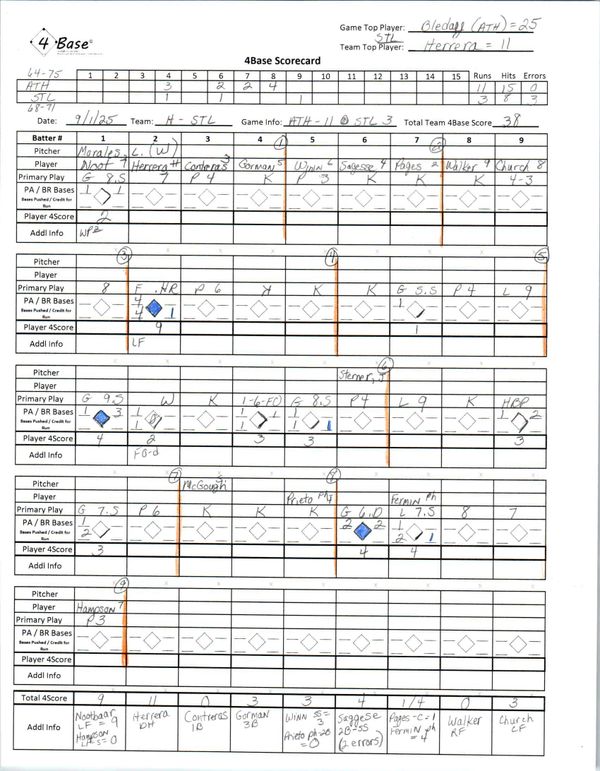 4Base®
Game Top Player: Bleday (ATH) = 25
STL
Team Top Player: Herrera = 11
4Base Scorecard
64-75 1 2 3 4 5 6 7 8 9 10 11 12 13 14 15 Runs Hits Errors
ATH 3 2 2 4 11 15 0
STL 1 1 1 3 8 3
68-71
Date: 9/1/25 Team: H - STL Game Info: ATH-11 @ STL 3 Total Team 4Base Score 38
Batter # 1 2 3 4 5 6 7 8 9
Pitcher Morales, L. (W)
Player Noot 7 Herrera Contreras 3 Gorman 5 Winn 6 Sagesse 4 Pages 2 Walker 9 Church 8
Primary Play G 8.S 7 P 4 K P 3 K K K 4-3
PA / BR Bases 1 1
Bases Pushed / Credit for Run
Player 4Score 2
Addl Info WP2
3 4 5
Pitcher
Player
Primary Play 8 F.HR P 6 K K K G 5.S P 4 L 9
PA / BR Bases 4 1
Bases Pushed / Credit for Run 4 1
Player 4Score 9 1
Addl Info LF
6
Pitcher Sterner, J
Player
Primary Play G 9.S W K 1-6-FO G 8.S P4 L 9 K HBP
PA / BR Bases 1 3 1 1 1 1 2
Bases Pushed / Credit for Run 1 1 1 1
Player 4Score 4 2 3 3 3
Addl Info FO-d
7 8
Pitcher McGough
Player Prieto ph Fermin ph
Primary Play G 7.S P 6 K K K G 6.D L 7.S 8 7
PA / BR Bases 1 2 2 1
Bases Pushed / Credit for Run 2 2 1
Player 4Score 3 4 4
Addl Info
9
Pitcher
Player Hampson 7
Primary Play P3
PA / BR Bases
Bases Pushed / Credit for Run
Player 4Score
Addl Info
Total 4Score 9 11 0 3 3 4 1/4 0 3
Addl Info Nootbaar LF = 9 Hampson LF = 0 Herrera DH Contreras 1B Gorman 3B Winn SS = 3 Prieto ph-2B = 0 Saggese 2B-SS (2 errors) Pages - C = 1 Fermin ph = 4 Walker RF Church CF